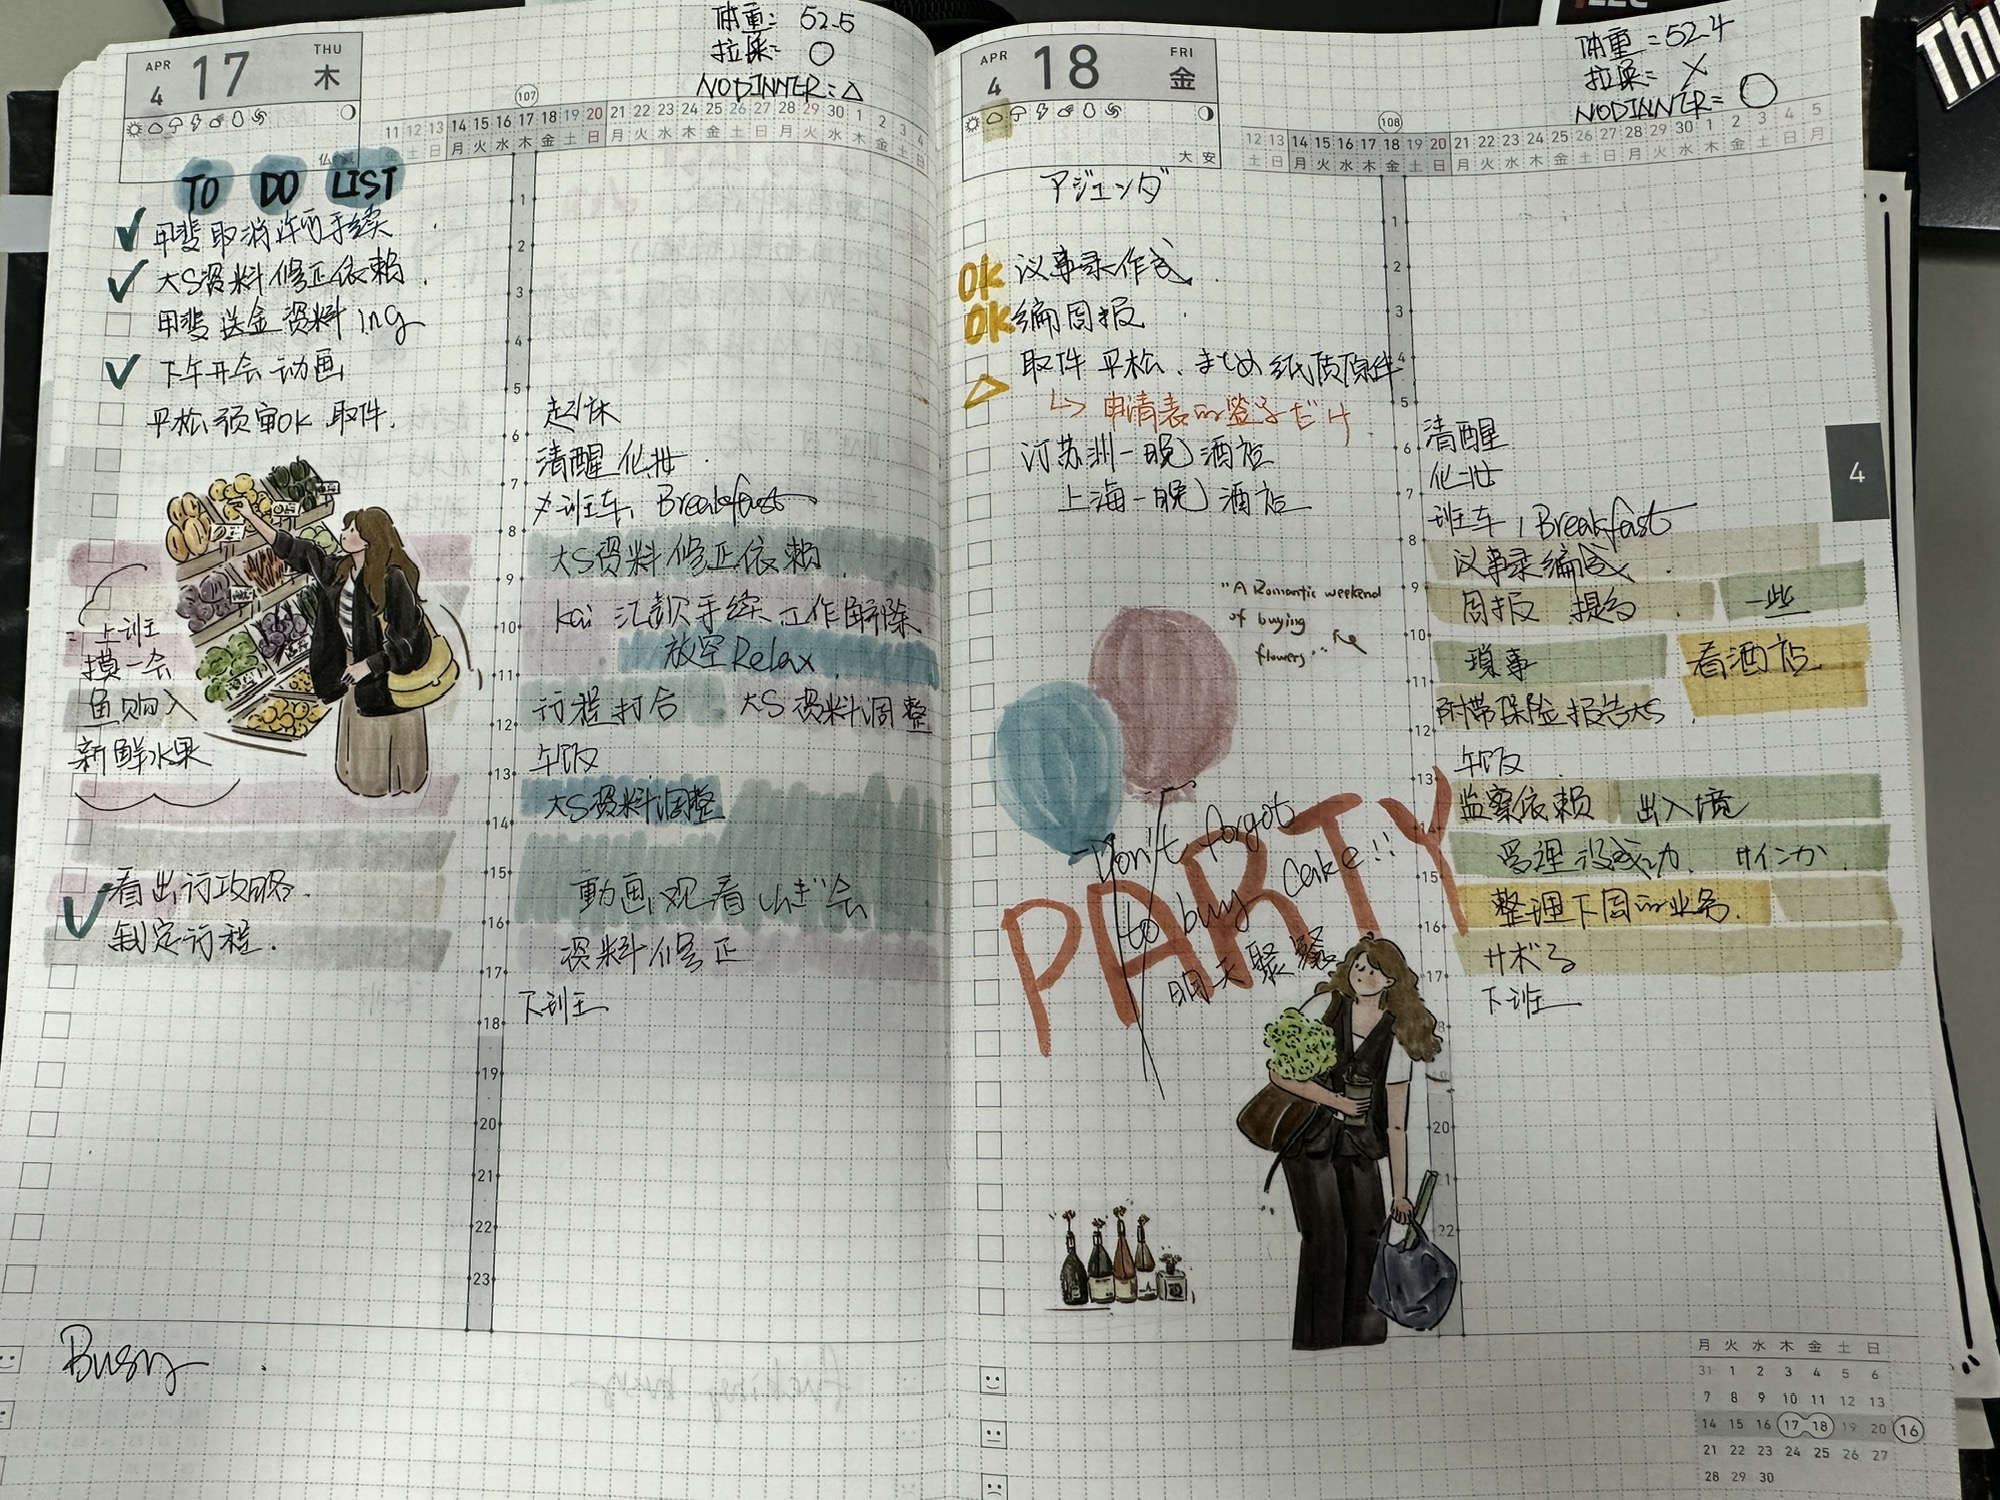 体重: 52.5
拉屎: ○
NODINNER=△
APR 17 THU
4 木
107
11 12 13 14 15 16 17 18 19 20 21 22 23 24 25 26 27 28 29 30 1 2 3 4
金 土 日 月 火 水 木 金 土 日 月 火 水 木 金 土 日 月 火 水 木 金 土 日
仏滅
TO DO LIST
✓ 甲斐取消许可手续
✓ 大S资料修正依赖.
甲斐送金资料ing
✓ 下午开会动画
平松预审OK 取件.
上班
摸一会
鱼购入
新鲜水果
✓ 看出行攻略.
制定行程.
1
2
3
4
5
起床
6
清醒 化妆.
7
班车, Breakfast
8
大S资料修正依赖.
9
kai 汇款手续 工作解除
10
放空Relax
11
行程打合 大S资料调整
12
午饭
13
大S资料调整
14
15
動画观看 会
16
资料修正
17
下班
18
19
20
21
22
23
Busy.
体重=52.4
拉屎=×
NODINNER=○
APR 18 FRI
4 金
108
12 13 14 15 16 17 18 19 20 21 22 23 24 25 26 27 28 29 30 1 2 3 4 5
土 日 月 火 水 木 金 土 日 月 火 水 木 金 土 日 月 火 水 木 金 土 日 月
大安
アジェンダ
OK 议事录作成.
OK 编周报.
△ 取件 平松、まとめ 纸质原件
↳ 申请表的签字だけ
订苏州一晚酒店
上海一晚酒店
"A Romantic weekend
of buying
flowers"
PARTY
Don't forgot
to buy cake!!
明天聚餐
1
2
3
4
5
清醒
6
化妆
7
班车, Breakfast
8
议事录编成.
9
周报 提出 一些
10
琐事 看酒店
11
附带保险报告大S
12
午饭
13
监察依赖 出入境
14
受理没成功. サインか
15
整理下周的业务.
16
サボる
17
下班
18
19
20
22
4
月 火 水 木 金 土 日
31 1 2 3 4 5 6
7 8 9 10 11 12 13
14 15 16 17 18 19 20 16
21 22 23 24 25 26 27
28 29 30